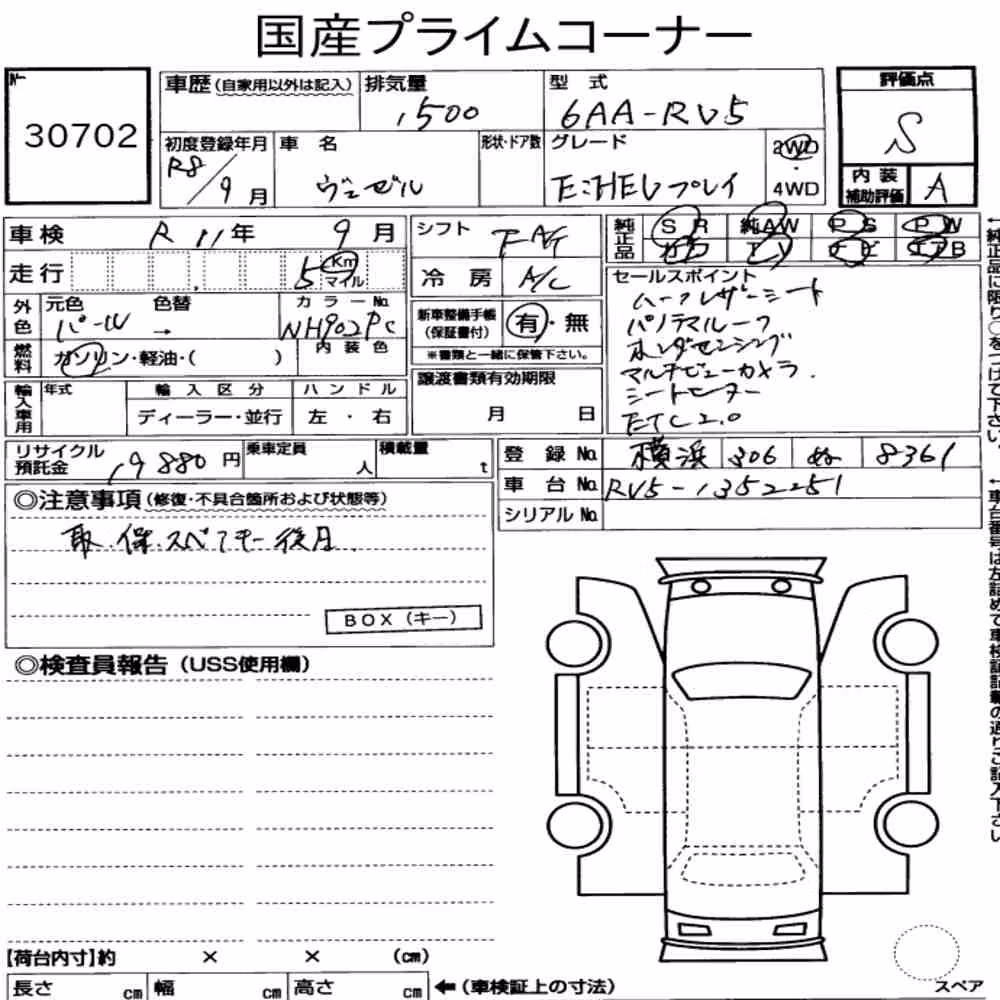 国産プライムコーナー
30702
車歴(自家用以外は記入)
排気量
1500
型式
6AA-RV5
評価点
S
内装
補助評価
A
初度登録年月
R8/9月
車名
ヴェゼル
形状・ドア数
グレード
E:HEVプレイ
2WD
・
4WD
車検 R11年 9月
走行 5 Km マイル
シフト FAT
冷房 A/C
純正品 SR 純AW PS PW
外色 元色 パール 色替 → カラーNo. NH902P
燃料 ガソリン・軽油・( )
内装色
新車整備手帳
(保証書付)
有・無
※書類と一緒に保管下さい。
セールスポイント
ハーフレザーシート
パノラマルーフ
ホンダセンシング
マルチビューカメラ.
シートヒーター
ETC2.0
輸入車用 年式 輸入区分 ディーラー・並行 ハンドル 左・右
譲渡書類有効期限
月 日
リサイクル
預託金
19880円
乗車定員
人
積載量
t
登録No. 横浜 306 ぬ 8361
車台No. RV5-1352251
シリアルNo.
◎注意事項(修復・不具合箇所および状態等)
取.保.スペアキー後日.
BOX(キー)
◎検査員報告(USS使用欄)
【荷台内寸】約 × × (cm)
長さ cm 幅 cm 高さ cm
←(車検証上の寸法)
スペア
←純正品に限り○をつけて下さい。
←車台番号は左詰めで車検証記載の通りご記入下さい